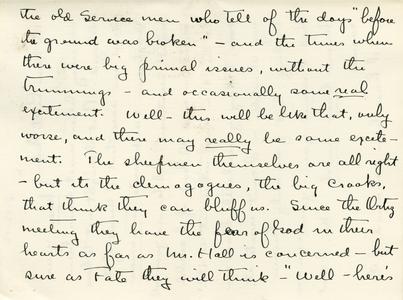 the old Service men who tell of the days "before
the ground was broken" - and the times when
there were big primal issues, without the
trimmings - and occasionally some real
excitement. Well - this will be like that, only
worse, and there may really be some excite-
ment. The sheepmen themselves are all right
- but its the demagogues, the big crooks,
that think they can bluff us. Since the
meeting they have the fear of God in their
hearts as far as Mr. Hall is concerned - but
sure as Fate they will think - "Well - here's